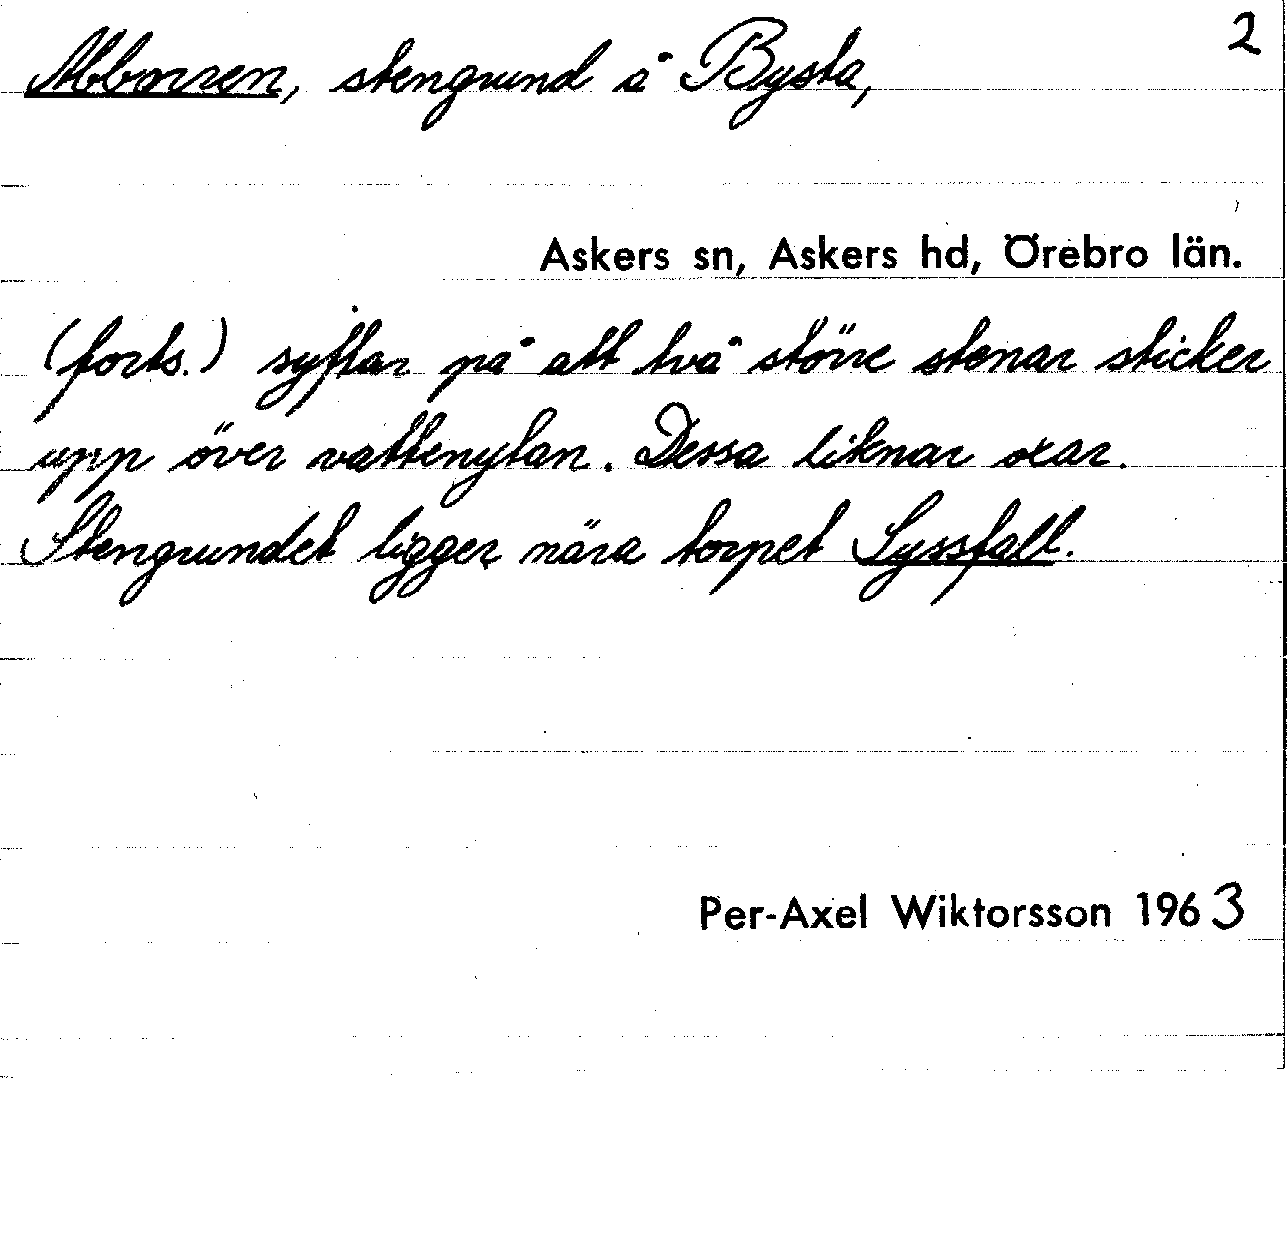 2
Abborren, stengrund å Bysta,
Askers sn, Askers hd, Örebro län.
(forts.) syftar på att två större stenar sticker
upp över vattenytan. Dessa liknar oxar.
Stengrundet ligger nära torpet Lyssfall.
Per-Axel Wiktorsson 1963